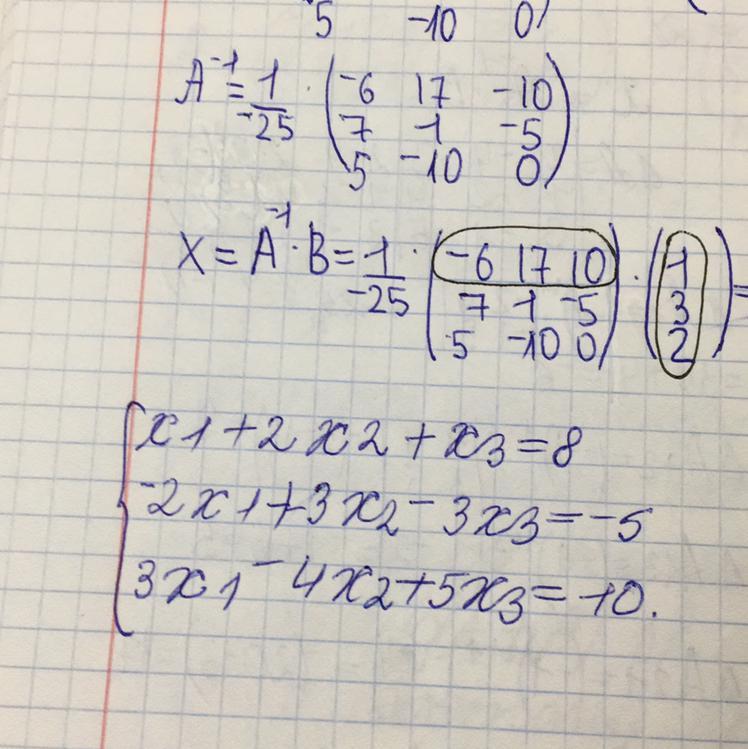 5 -10 0)
A⁻¹ = 1/-25 · (-6 17 -10
7 1 -5
5 -10 0)
X = A⁻¹ · B = 1/-25 · (-6 17 10
7 1 -5
5 -10 0) · (1
3
2) =
{ x1 + 2x2 + x3 = 8
-2x1 + 3x2 - 3x3 = -5
3x1 - 4x2 + 5x3 = 10.